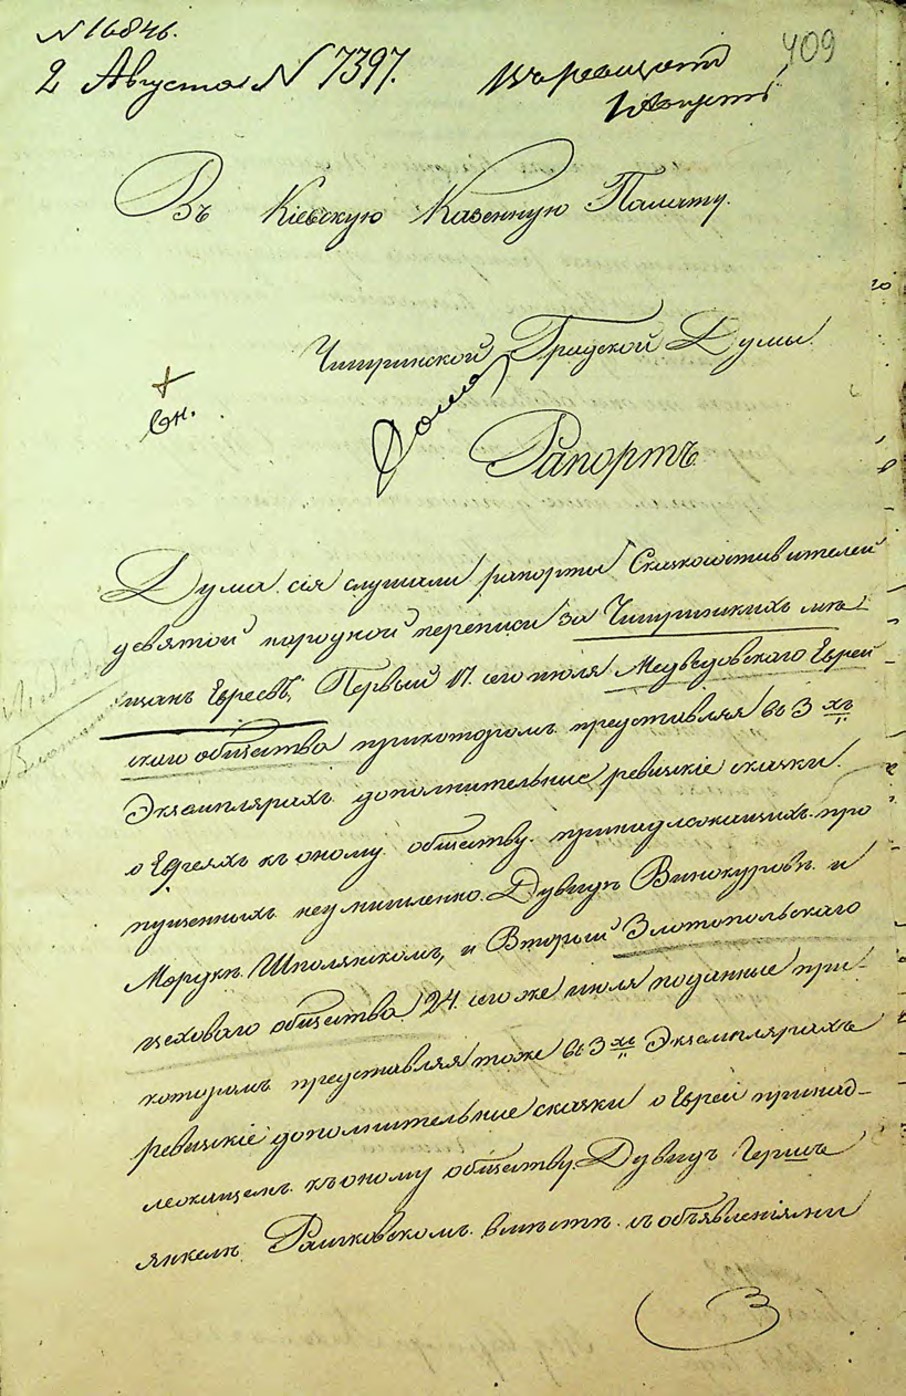 N 16846.
2 Августа N 7397.
409
Въ Кіевскую Казенную Палату.
Чигиринской Градской Думы.
Рапортъ
Дума сія слушали рапорты Сказкосоставителей
девятой народной переписи за Чигиринскихъ мѣ-
щанъ Евреевъ, Первый 17. сего июля Медведовскаго Еврей
скаго общества прикоторомъ представляя въ 3 хъ
Экземплярахъ дополнительные ревизскіе сказки
о Евреяхъ къ оному обществу принадлежащихъ про
пущенныхъ неумышленно Дувидѣ Винокуровѣ и
Мордкѣ Шполянскомъ, и Вторый Златопольскаго
цеховаго общества 24. сего же июля поданные при
которомъ представляя тоже въ 3 хъ Экземплярахъ
ревизскіе дополнительные сказки о Еврей принад-
лежащемъ къ оному обществу Дувидъ Гершъ
Янкелѣ Рашковскомъ вместѣ съ объявленіями